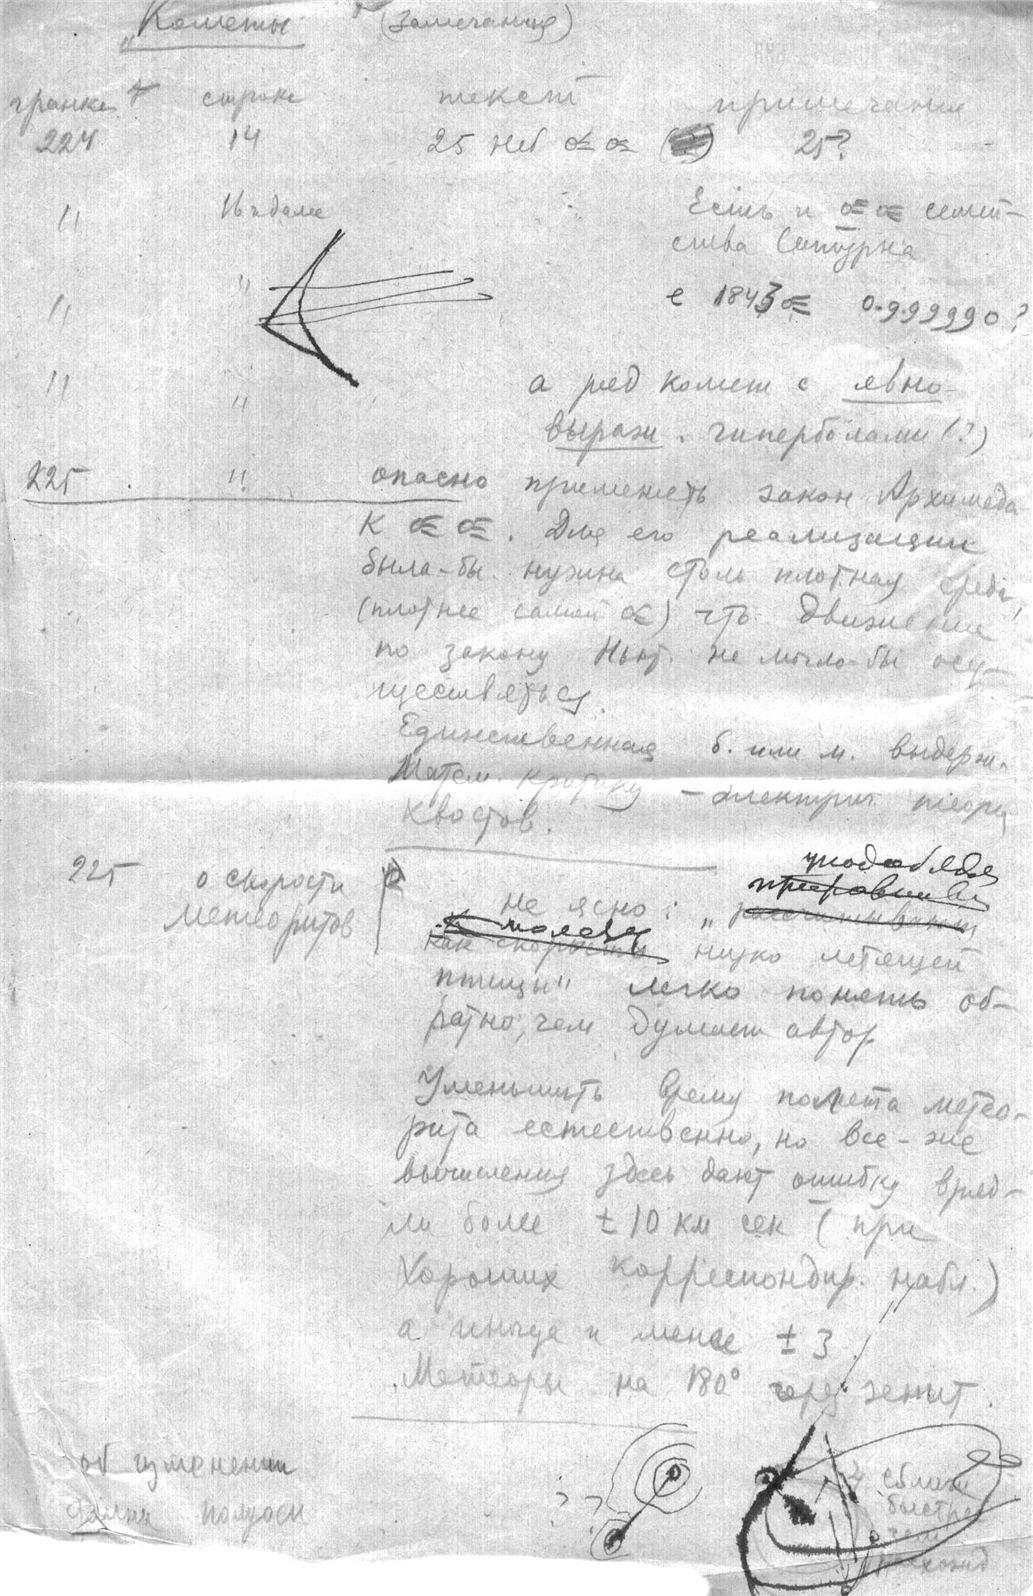 „Кометы (Замечания)
гранка строка текст примечание
224 14 25 неб ☄ ☄ 25?
" 16 и далее Есть и ☄ ☄ семей-
ства Сатурна
" " e 1843 ☄ 0.999990?
" " а ряд комет с явно
выраж. гиперболами (?)
225 " опасно применять закон Архимеда
к ☄ ☄. Для его реализации
была-бы нужна столь плотная среда,
(плотнее самой ☄) что движение
по закону Ньют. не могло-бы осу-
ществляться.
Единственная б. или м. выдерж.
матем. критику – электрич. теория
хвостов.
225 о скорости
метеоритов
уподобляя
не ясно: „
как скорость низко летящей
птицы" легко понять об-
ратно, чем думает автор
Уменьшить время полета метео-
рита естественно, но все-же
вычисления здесь дают ошибку вряд-
ли более ± 10 км сек (при
хороших корреспондир. набл.)
а иногда и менее ± 3.
Метеоры на 180° через зенит.
об изменении
полуоси
? ?
сближ.
быстрее
чем